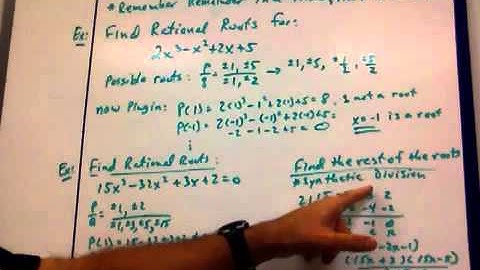 * Remember Remainder
Ex: Find Rational Roots for:
2x³-x²+2x+5
Possible roots: P/q = ±1, ±5 / ±1, ±2 → ±1, ±5, ±1/2, ±5/2
now Plugin: P(1) = 2(1)³-1²+2(1)+5 = 8, 1 not a root
P(-1) = 2(-1)³-(-1)²+2(-1)+5 x=-1 is a root
-2-1-2+5=0
Ex: Find Rational Roots:
15x³-32x²+3x+2=0
P/Q = ±1, ±2
P(1) =
Find the rest of the roots
* Synthetic Division
2
-4 -2
-1 0
R
-2x-1)